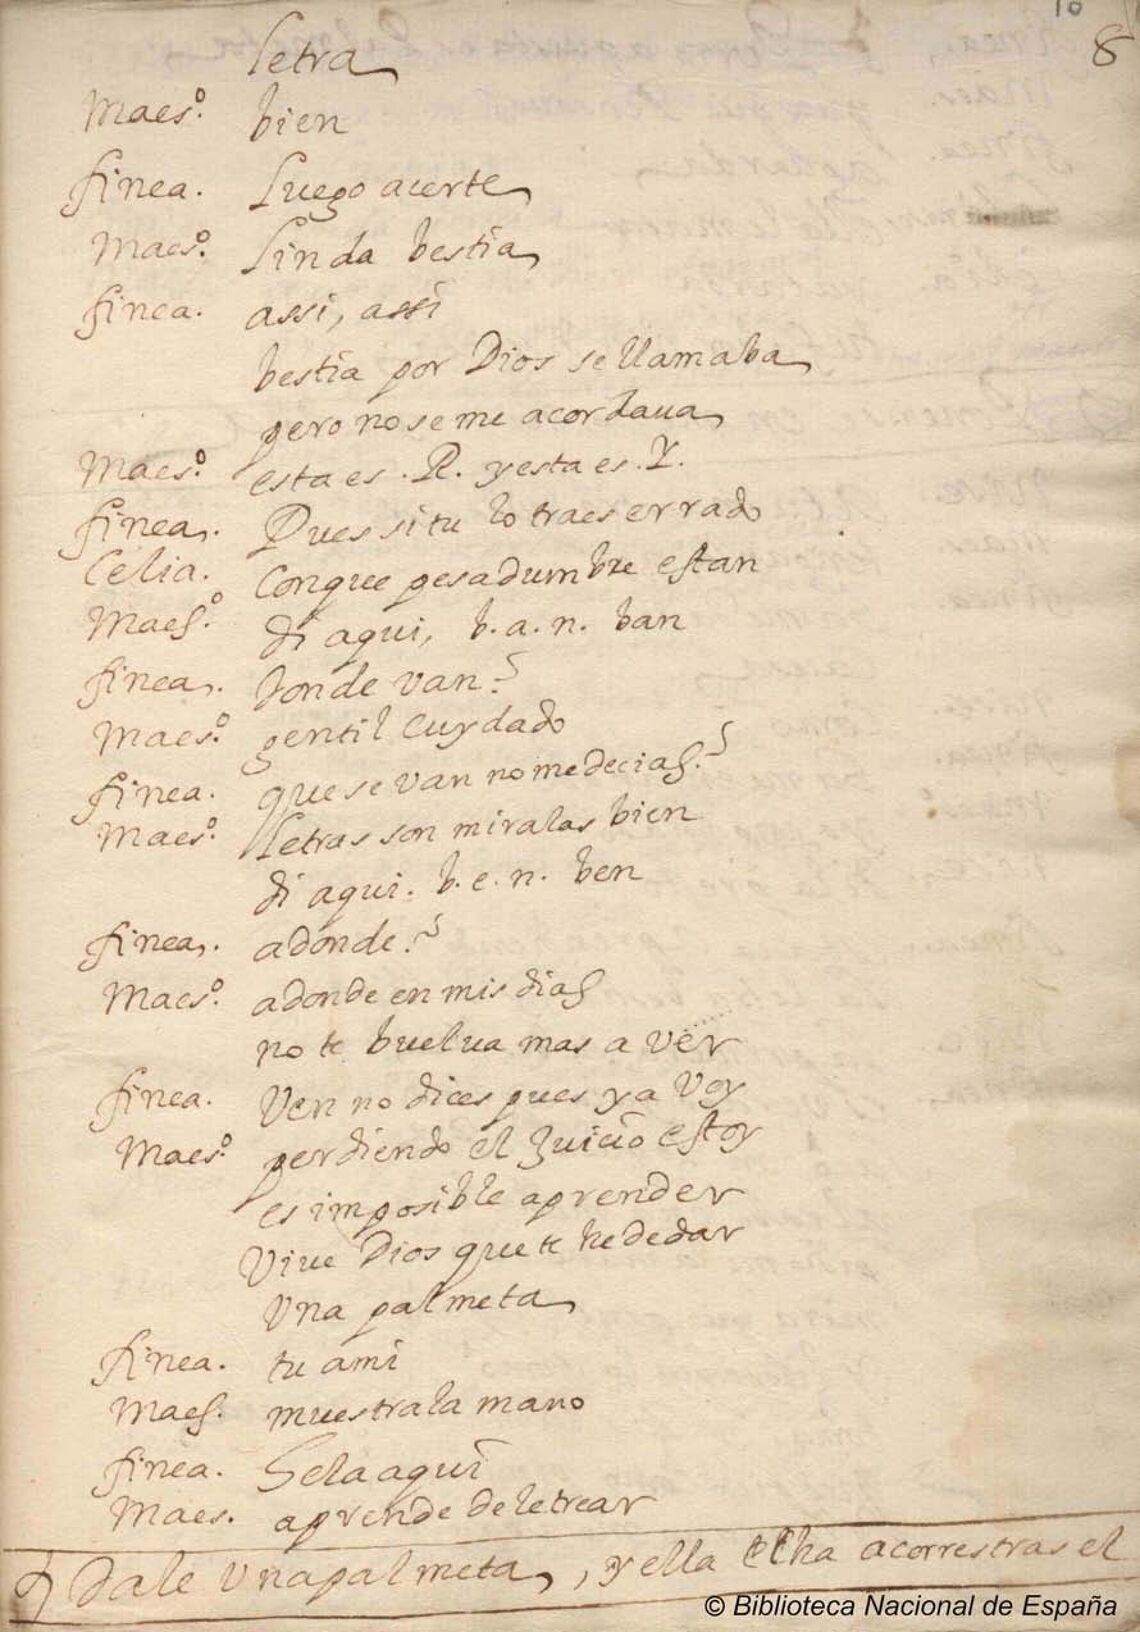 10
8
letra
Maes.º bien
finea. Luego acerte
Maes.º linda bestia
finea. assi, assi
bestia por Dios se llamaba
pero no se me acordaua
Maes.º esta es .R. y esta es .Y.
finea. Pues si tu lo traes errado
Celia. Con que pesadumbre estan
Maes.º di aqui, b.a.n. ban
finea. donde van?
Maes.º gentil cuydado
finea. que se van no me decias?
Maes.º letras son miralas bien
di aqui. b.e.n. ben
finea. adonde?
Maes.º adonde en mis dias
no te buelua mas a ver
finea. Ven no dices pues ya voy
Maes.º perdiendo el Juicio estoy
es imposible aprender
Viue Dios que te he de dar
Una palmeta
finea. tu a mi
Maes. muestra la mano
finea. Hela aqui
Maes. aprende deletrear
Dale Una palmeta, y ella echa a correr tras el
© Biblioteca Nacional de España